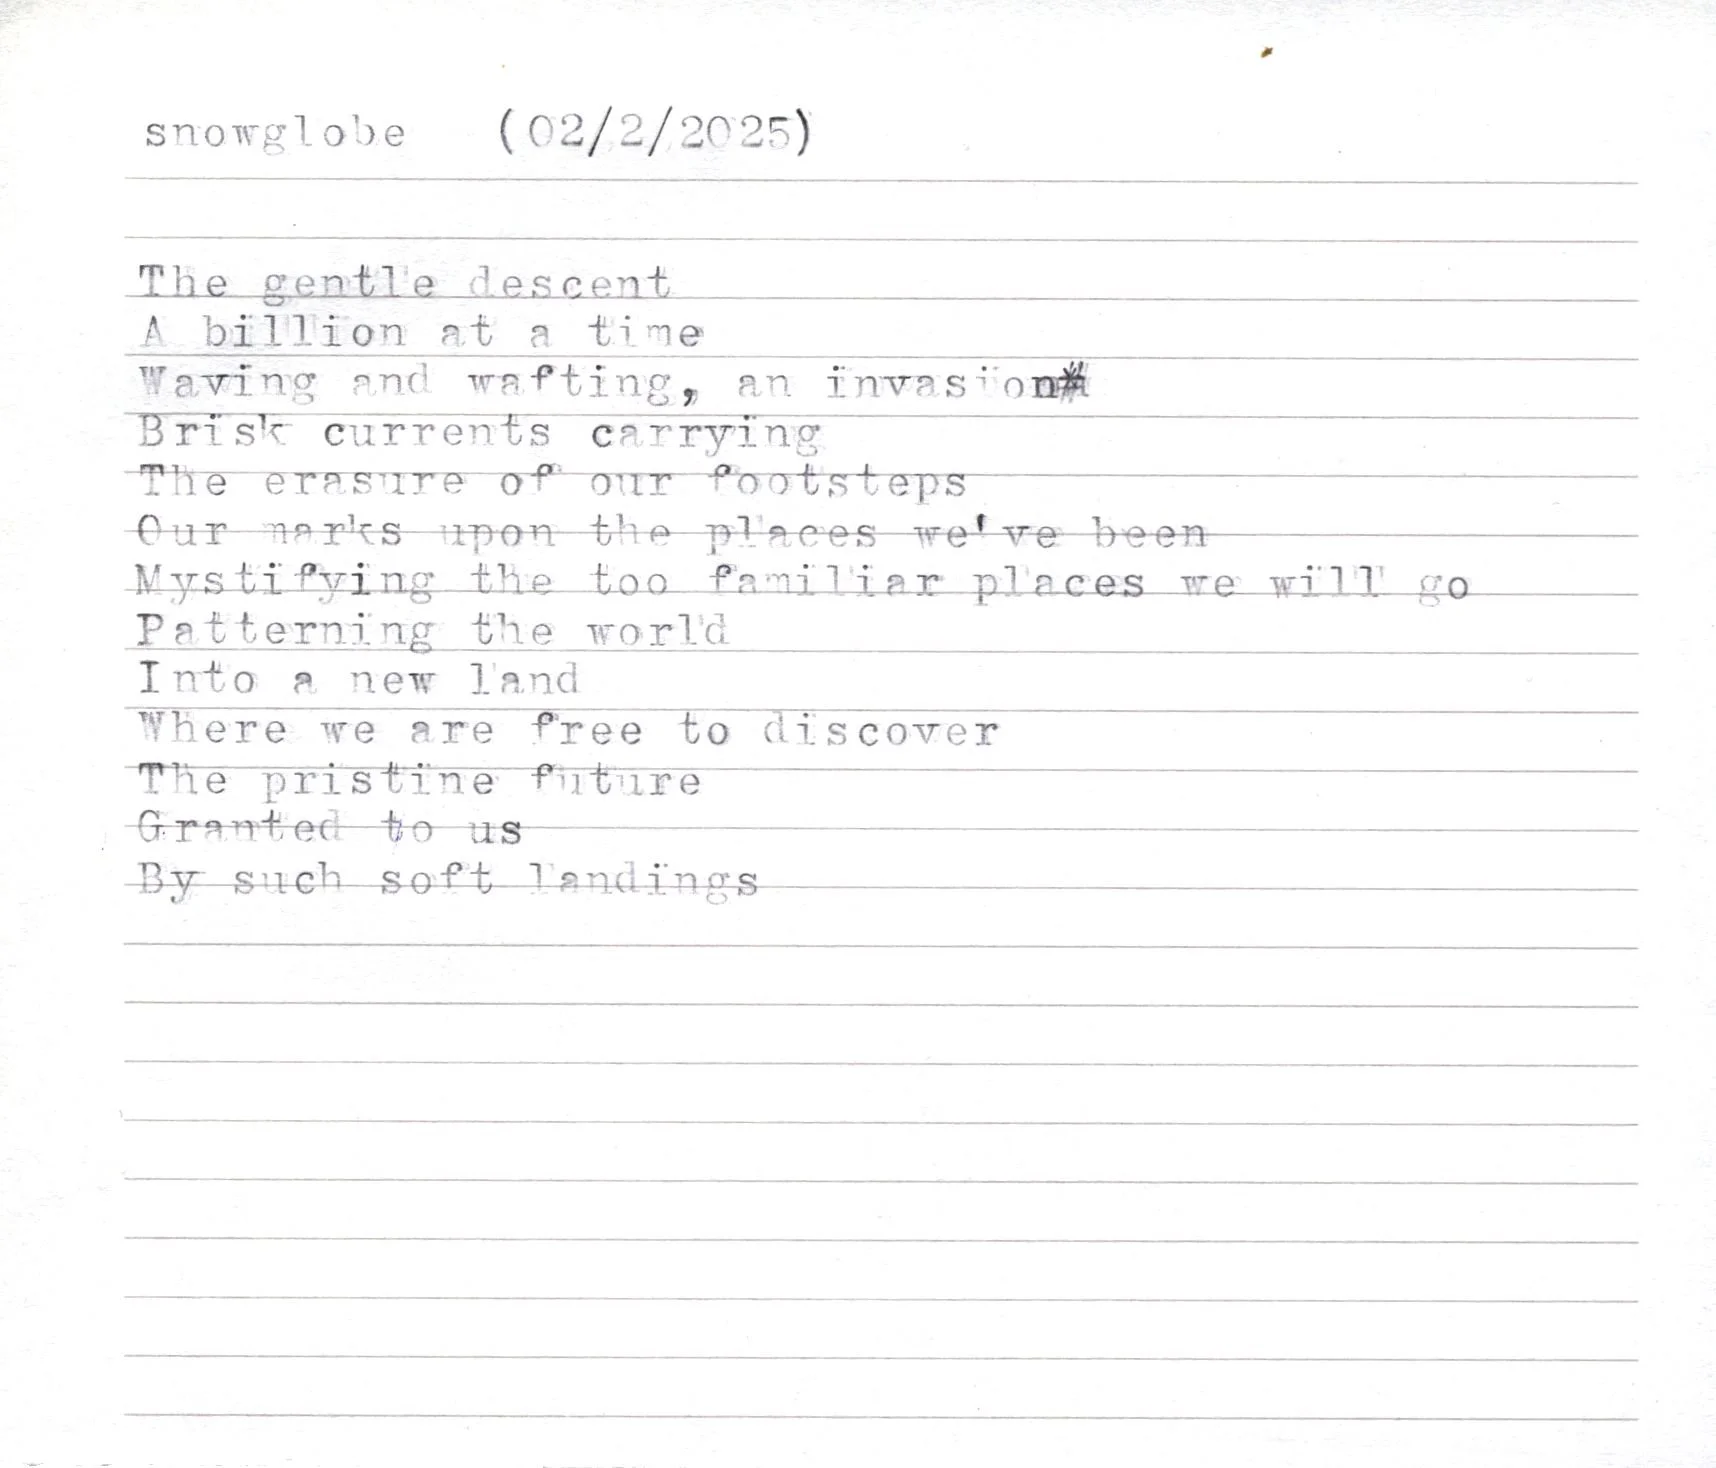 snowglobe (02/2/2025)
The gentle descent
A billion at a time
Waving and wafting, an invasion
Brisk currents carrying
The erasure of our footsteps
Our marks upon the places we've been
Mystifying the too familiar places we will go
Patterning the world
Into a new land
Where we are free to discover
The pristine future
Granted to us
By such soft landings